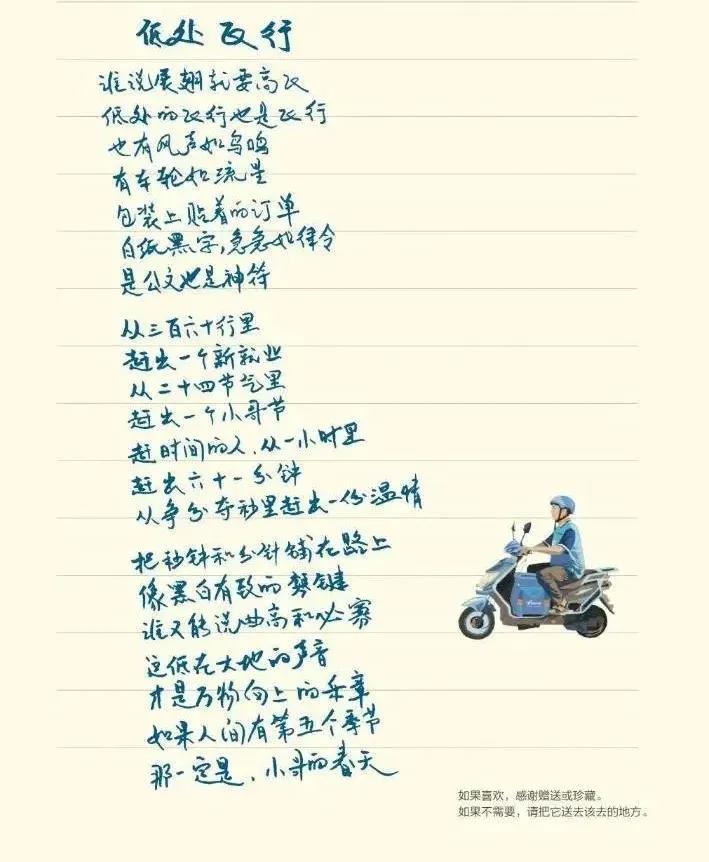 低处飞行
谁说展翅就要高飞
低处的飞行也是飞行
也有风声如鸟鸣
有车轮如流星
包装上贴着的订单
白纸黑字,急急如律令
是公文也是神符
从三百六十行里
赶出一个新就业
从二十四节气里
赶出一个小哥节
赶时间的人,从一小时里
赶出六十一分钟
从争分夺秒里赶出一份温情
把秒针和分针铺在路上
像黑白有致的琴键
谁又能说曲高和必寡
这低在大地的声音
才是万物向上的乐章
如果人间有第五个季节
那一定是,小哥的春天
如果喜欢,感谢赠送或珍藏。
如果不需要,请把它送去该去的地方。